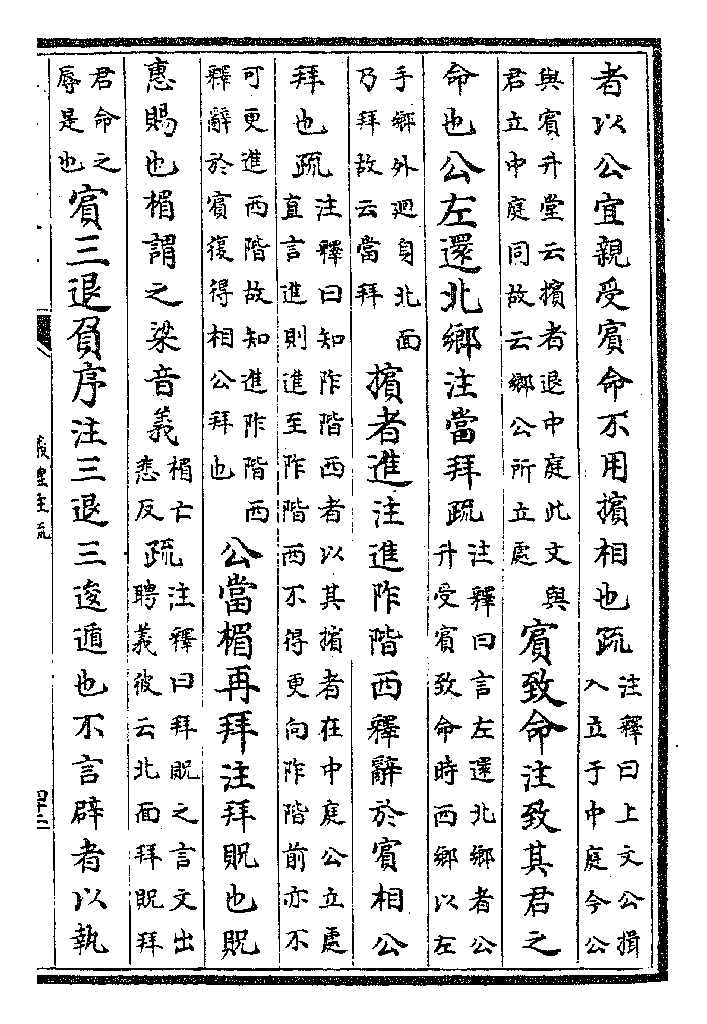 者以公宜親受賓命不用擯相也疏注釋曰上文公揖入立于中庭今公
與賓升堂云擯者退中庭此文與君立中庭同故云鄉公所立處賓致命注致其君之
命也公左還北鄉注當拜疏注釋曰言左還北鄉者公升受賓致命時西鄉以左
手鄉外迴身北面乃拜故云當拜擯者進注進阼階西釋辭於賓相公
拜也疏注釋曰知阼階西者以其擯者在中庭公立處直言進則進至阼階西不得更向阼階前亦不
可更進西階故知進阼階西釋辭於賓復得相公拜也公當楣再拜注拜貺也貺
惠賜也楣謂之梁音義楣亡悲反疏注釋曰拜貺之言文出聘義彼云北面拜貺拜
君命之辱是也賓三退負序注三退三逡遁也不言辟者以執